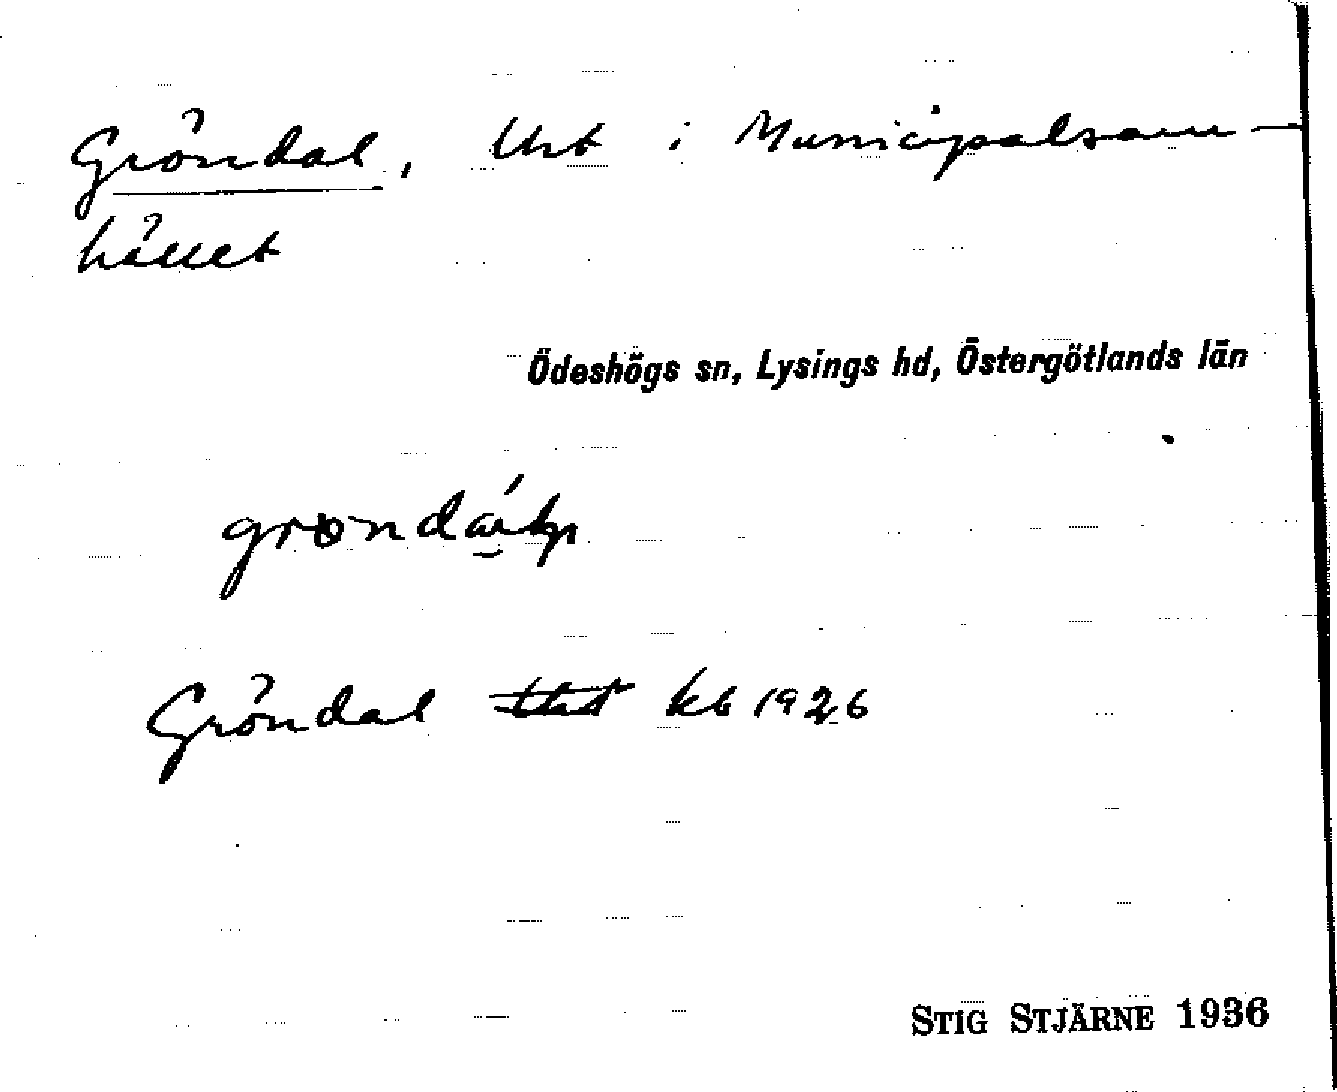 Gröndal, Urt i Municipalsam-
hället
Ödeshögs sn, Lysings hd, Östergötlands län
Gröndal kb 1926
STIG STJÄRNE 1936